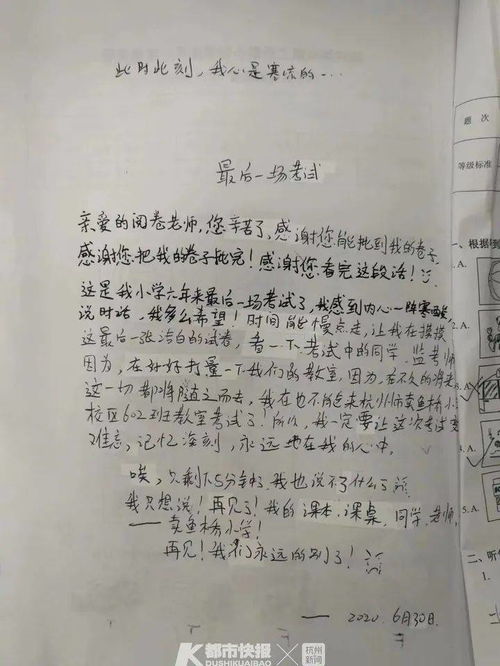 此时此刻，我心是寒凉的…
最后一场考试
亲爱的阅卷老师，您辛苦了，感谢您能批到我的卷子，
感谢您把我的卷子批完！感谢您看完这段话！
这是我小学六年来最后一场考试了，我感到内心一阵寒
说时话，我多么希望！时间能慢点走，让我在摸摸
这最后一张洁白的试卷，看一下考试中的同学，监考师
因为，在好好打量一下我们的教室，因为，在不久的将来
这一切都将随之而去，我在也不能来杭州师卖鱼桥小
校区602班教室考试了！所以，我一定要让这次考试变
难忘，记忆深刻，永远地在我的心中。
唉，只剩下5分钟了，我也说不了什么了
我只想说！再见了！我的课本，课桌，同学，老师，
——卖鱼桥小学！
再见！我们永远的别了！
——2020 6月30日.
题 次
等级标准
一、根据
A.
A.
A.
5. A.
二、听
1.
都市快报
DUSHIKUAIBAO
杭州
新闻